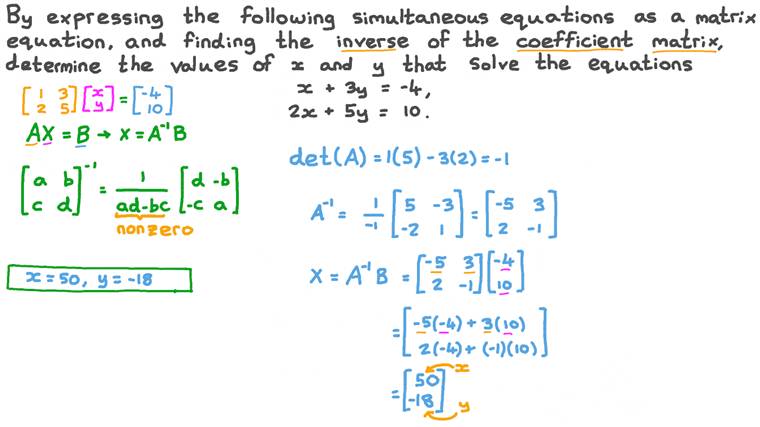 By expressing the following simultaneous equations as a matrix
equation, and finding the inverse of the coefficient matrix,
determine the values of x and y that solve the equations
x + 3y = -4,
2x + 5y = 10.
[1 3; 2 5][x; y] = [-4; 10]
AX = B → X = A⁻¹B
[a b; c d]⁻¹ = 1/(ad-bc) [d -b; -c a]
nonzero
x = 50, y = -18
det(A) = 1(5) - 3(2) = -1
A⁻¹ = 1/-1 [5 -3; -2 1] = [-5 3; 2 -1]
X = A⁻¹B = [-5 3; 2 -1][-4; 10]
= [-5(-4) + 3(10); 2(-4) + (-1)(10)]
= [50; -18]
x
y